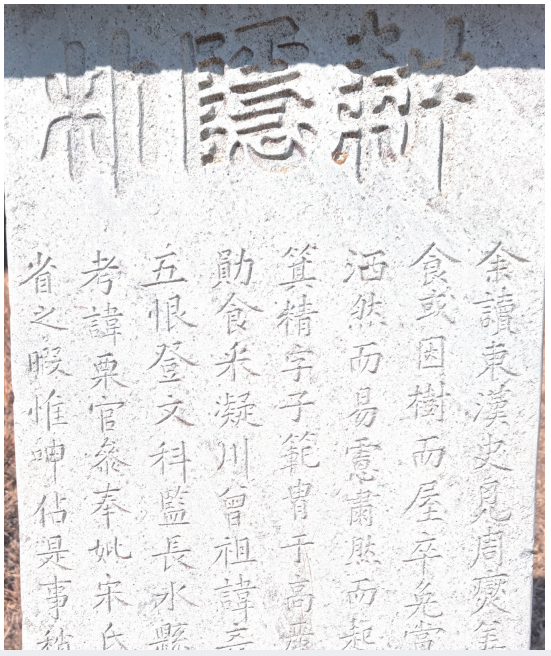 新隱
余讀東漢史見周燮
食或因樹而屋卒免當
洒然而易慮肅然而起
箕精字子範胄于高麗
勛食采凝川曾祖諱
五恨登文科監長水縣
考諱栗官參奉妣宋氏
省之暇惟呻佔是事